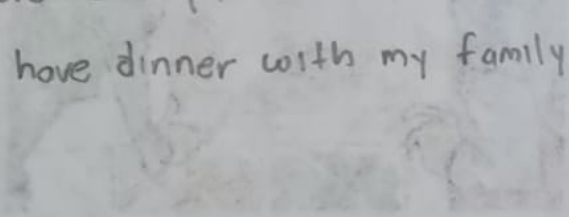 have dinner with my family